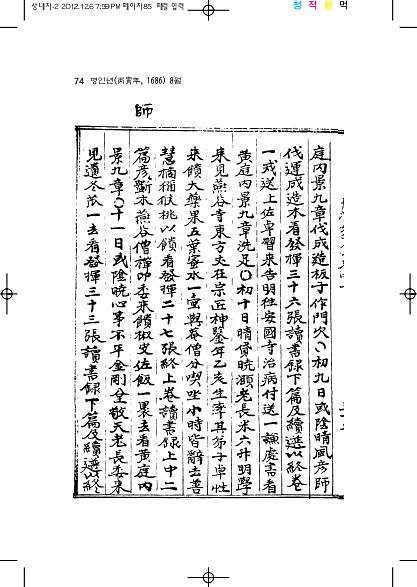 상내지-2 2012.12.6 7:59 PM 페이지85 패컴 입력
청 적 황 먹
74 병인년(丙寅年, 1686) 8월
師
庭內景九章伐成造板子作門穴○初九日或陰晴風彦師
伐運成造木看發揮三十六張讀書錄下篇及續選以終卷
一戒送上佐卓習來告明往安國寺治病付送一謙處書看
黃庭內景九章洗足○初十日晴貸晩灝老長米六升明學
來見燕谷寺東方丈在宗匠神鑒年乙亥生率其弟子卓性
來饋大藥果五葉蜜水一壺與谷僧分喫坐小時皆辭去善
慧楠桶猴桃以饋看發揮二十七張終上卷讀書錄上中二
篇彦斷本燕谷僧稱卬委來饋椒文佐飯一裹去看黃庭內
景九章○十一日或陰晩心事不平金剛全敬天老長委來
見遺冬苽一去看發揮三十三張讀書錄下篇及續選以終